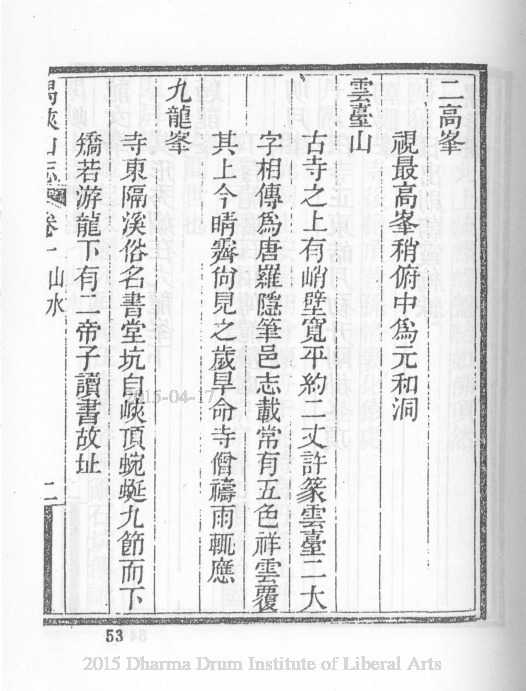 二高峯
視最高峯稍俯中爲元和洞
雲臺山
古寺之上有峭壁寬平約二丈許篆雲臺二大
字相傳爲唐羅隱筆邑志載常有五色祥雲覆
其上今晴霽尙見之歲旱命寺僧禱雨輒應
九龍峯
寺東隔溪俗名書堂坑自峽頂蜿蜒九節而下
矯若游龍下有二帝子讀書故址
峽山志 卷一 山水 二
2015-04-17
53
2015 Dharma Drum Institute of Liberal Arts